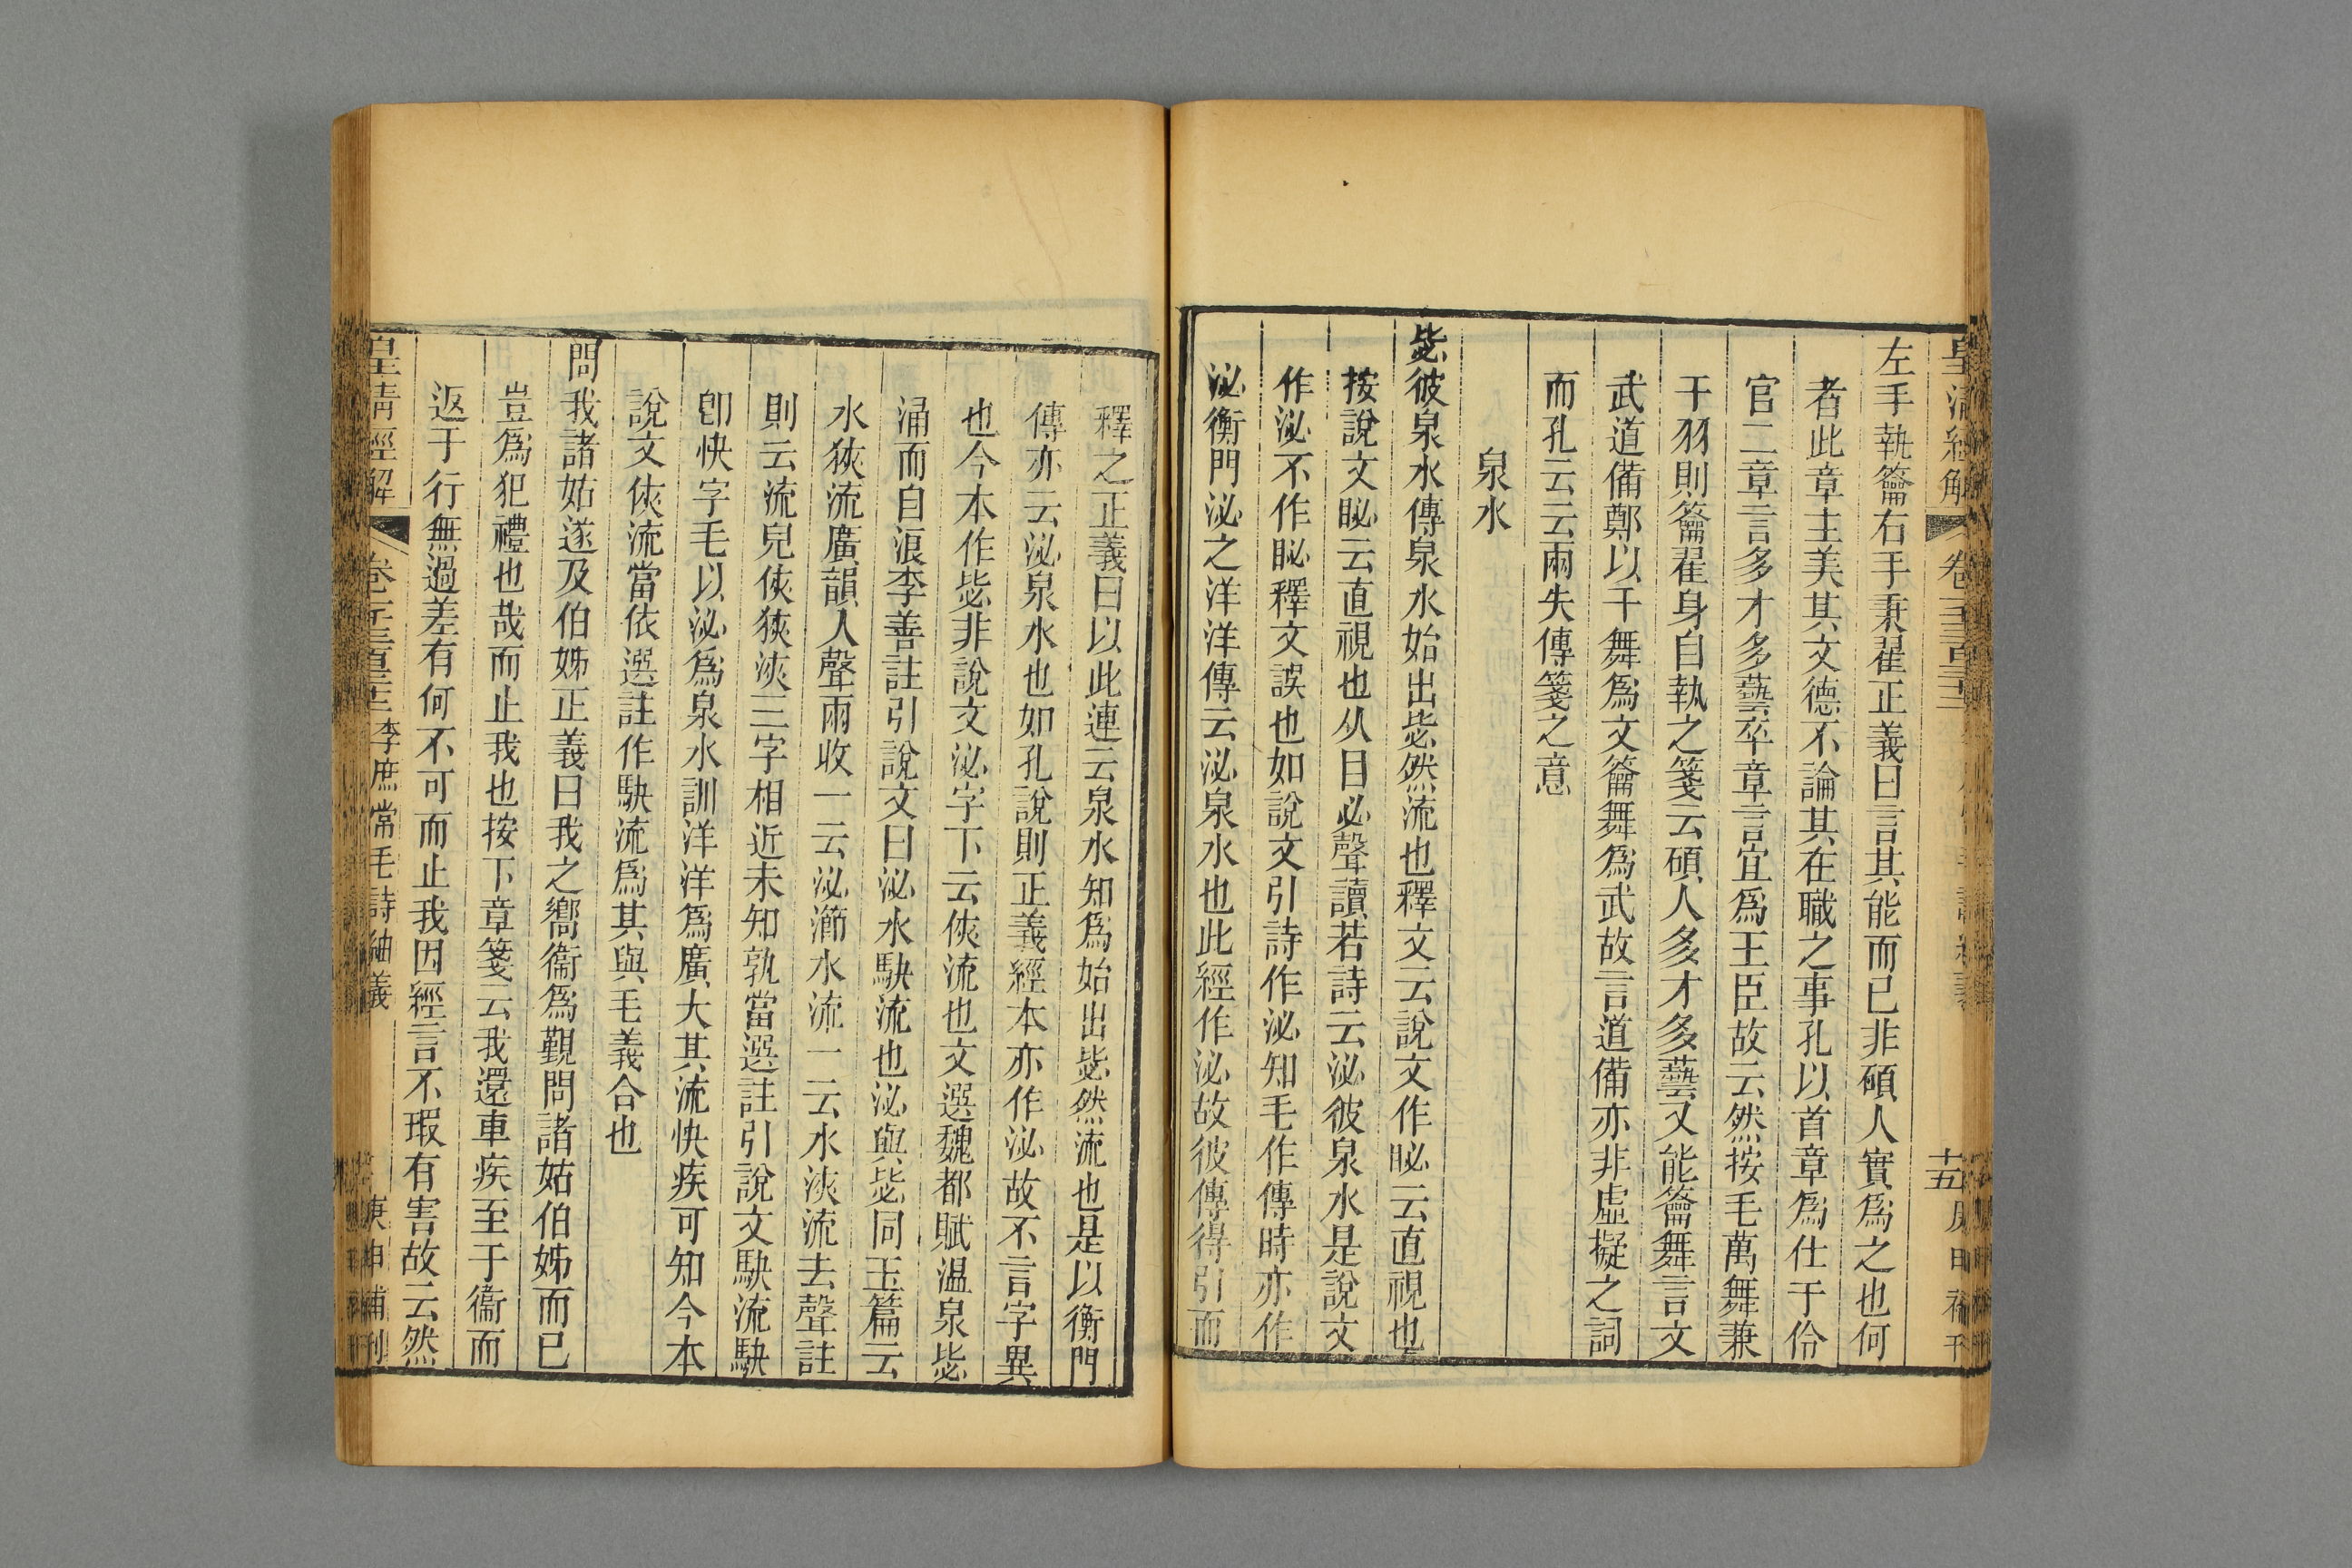 皇清經解
左手執籥右手秉翟正義曰言其能而已非碩人實爲之也何
者此章主美其文德不論其在職之事孔以首章爲仕于伶
官二章言多才多藝卒章言宜爲王臣故云然按毛萬舞兼
干羽則籥翟身自執之箋云碩人多才多藝又能籥舞言文
武道備鄭以干舞爲文籥舞爲武故言道備亦非虛擬之詞
而孔云云兩失傳箋之意
泉水
毖彼泉水傳泉水始出毖然流也釋文云說文作䀣云直視也
按說文䀣云直視也从目必聲讀若詩云泌彼泉水是說文
作泌不作䀣釋文誤也如說文引詩作泌知毛作傳時亦作
泌衡門泌之洋洋傳云泌泉水也此經作泌故彼傳得引而
釋之正義曰以此連云泉水知爲始出毖然流也是以衡門
傳亦云泌泉水也如孔說則正義經本亦作泌故不言字異
也今本作毖非說文泌字下云俠流也文選魏都賦温泉毖
涌而自浪李善註引說文曰泌水駃流也泌與毖同玉篇云
水狹流廣韻入聲兩收一云泌㴉水流一云水浹流去聲註
則云流皃俠狹浹三字相近未知孰當選註引說文駃流駃
卽快字毛以泌爲泉水訓洋洋爲廣大其流快疾可知今本
說文俠流當依選註作駃流爲其與毛義合也
問我諸姑遂及伯姊正義曰我之嚮衞爲覲問諸姑伯姊而已
豈爲犯禮也哉而止我也按下章箋云我還車疾至于衞而
返于行無過差有何不可而止我因經言不瑕有害故云然
皇清經解
李庶常毛詩紬義
庚申補刊